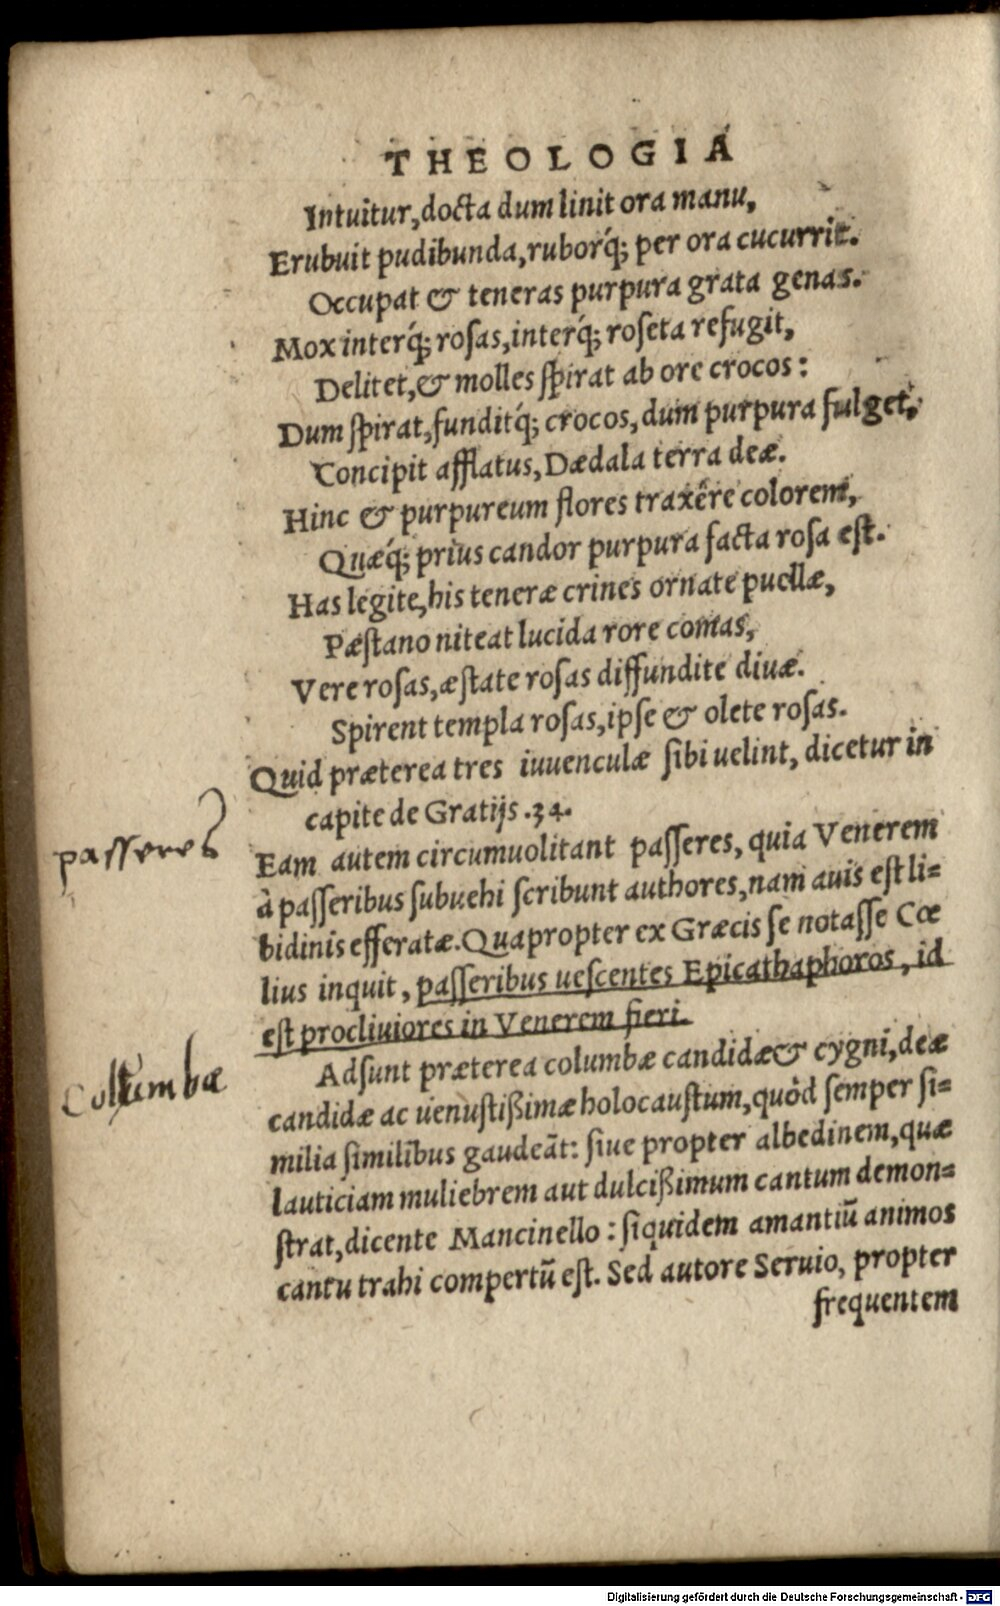 THEOLOGIA
Intuitur, docta dum linit ora manu,
Erubuit pudibunda, ruborq́; per ora cucurrit.
Occupat & teneras purpura grata genas.
Mox interq́; roſas, interq́; roſeta refugit,
Delitet, & molles ſpirat ab ore crocos:
Dum ſpirat, funditq́; crocos, dum purpura fulget,
Concipit afflatus, Dædala terra deæ.
Hinc & purpureum flores traxêre colorem,
Quæq́; prius candor purpura facta roſa eſt.
Has legite, his teneræ crines ornate puellæ,
Pæſtano niteat lucida rore comas,
Vere roſas, æſtate roſas diffundite diuæ.
Spirent templa roſas, ipſe & olete roſas.
Quid præterea tres iuuenculæ ſibi uelint, dicetur in
capite de Gratijs .34.
passeres
Eam autem circumuolitant paſſeres, quia Venerem
à paſſeribus ſubuehi ſcribunt authores, nam auis eſt li-
bidinis efferatæ. Quapropter ex Græcis ſe notaſſe Cœ
lius inquit, paſſeribus ueſcentes Epicathaphoros, id
eſt procliuiores in Venerem fieri.
Columbæ
Adſunt præterea columbæ candidæ & cygni, deæ
candidæ ac uenuſtißimæ holocauſtum, quòd ſemper ſi-
milia ſimilibus gaudeāt: ſiue propter albedinem, quæ
lauticiam muliebrem aut dulcißimum cantum demon-
ſtrat, dicente Mancinello: ſiquidem amantiū animos
cantu trahi compertū eſt. Sed autore Seruio, propter
frequentem
Digitalisierung gefördert durch die Deutsche Forschungsgemeinschaft - DFG